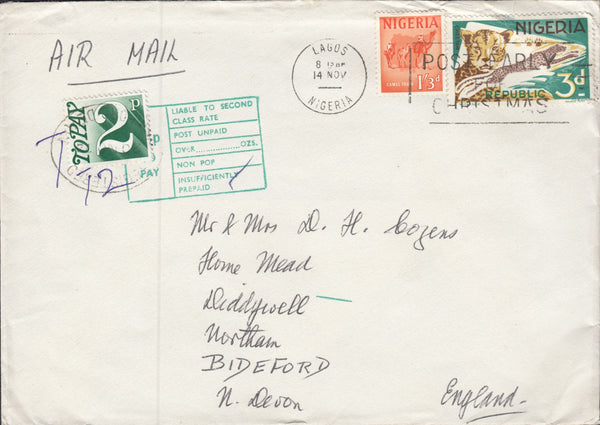 AIR MAIL
LAGOS
14 NOV
NIGERIA
NIGERIA
CAMEL TRAIN
1/3d
NIGERIA
REPUBLIC
3d
POST EARLY
FOR
CHRISTMAS
TO PAY
2P
LIABLE TO SECOND
CLASS RATE
POST UNPAID
OVER............OZS.
NON POP
INSUFFICIENTLY
PREPAID
PAY
Mr & Mrs D. H. Cozens
Home Mead
Diddywell
Northam
BIDEFORD
N. Devon
England.